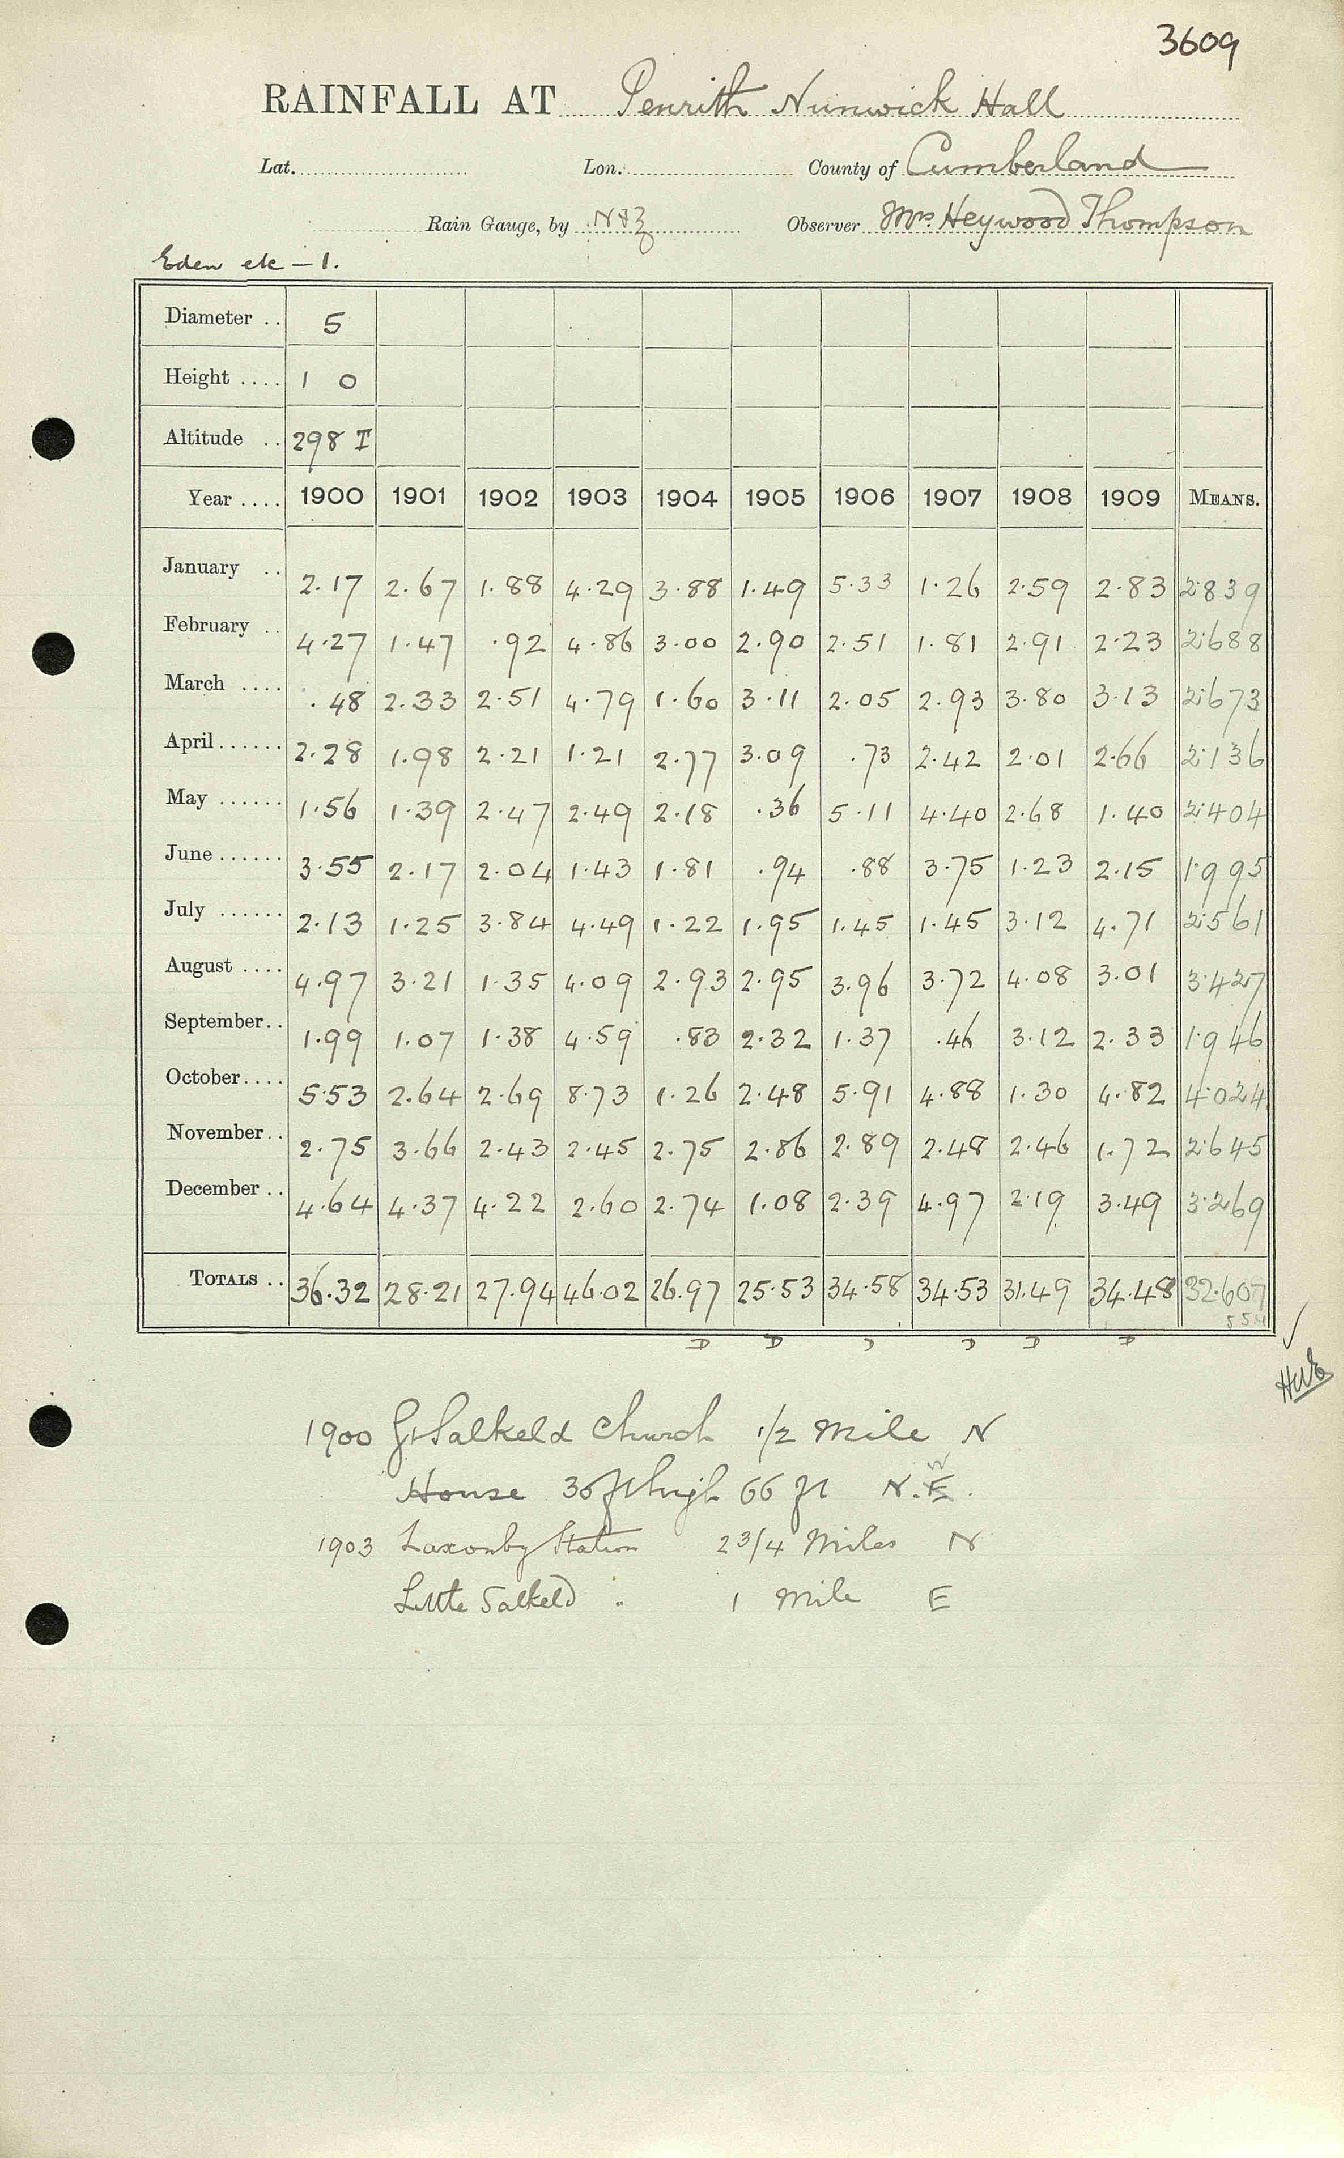 3609
RAINFALL AT Penrith Nunwick Hall
Lat. Lon. County of Cumberland
Rain Gauge, by N&Z Observer Mrs. Heywood Thompson
Eden etc - 1.
Diameter .. 5
Height .... 1 0
Altitude .. 298 T
Year .... 1900 1901 1902 1903 1904 1905 1906 1907 1908 1909 MEANS.
January .. 2.17 2.67 1.88 4.29 3.88 1.49 5.33 1.26 2.59 2.83 2.839
February .. 4.27 1.47 .92 4.86 3.00 2.90 2.51 1.81 2.91 2.23 2.688
March .... .48 2.33 2.51 4.79 1.60 3.11 2.05 2.93 3.80 3.13 2.673
April...... 2.28 1.98 2.21 1.21 2.77 3.09 .73 2.42 2.01 2.66 2.136
May ...... 1.56 1.39 2.47 2.49 2.18 .36 5.11 4.40 2.68 1.40 2.404
June...... 3.55 2.17 2.04 1.43 1.81 .94 .88 3.75 1.23 2.15 1.995
July ...... 2.13 1.25 3.84 4.49 1.22 1.95 1.45 1.45 3.12 4.71 2.561
August .... 4.97 3.21 1.35 4.09 2.93 2.95 3.96 3.72 4.08 3.01 3.427
September.. 1.99 1.07 1.38 4.59 .83 2.32 1.37 .46 3.12 2.33 1.946
October.... 5.53 2.64 2.69 8.73 1.26 2.48 5.91 4.88 1.30 4.82 4.024
November.. 2.75 3.66 2.43 2.45 2.75 2.86 2.89 2.48 2.46 1.72 2.645
December .. 4.64 4.37 4.22 2.60 2.74 1.08 2.39 4.97 2.19 3.49 3.269
TOTALS .. 36.32 28.21 27.94 46.02 26.97 25.53 34.58 34.53 31.49 34.48 32.607
D D D D D D
1900 Gt Salkeld Church 1/2 Mile N
House 36 ft high 66 ft N.
1903 Lazonby Station 2 3/4 Miles N
Little Salkeld " 1 Mile E